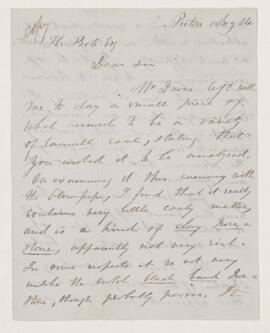 Copy
Pictou Aug
H. Poole Esq
Dear Sir
Mr Dawes left with
me to day a small piece of
what seemed to be a variety
of cannell coal, stating that
you wished it to be analysed.
On examining it this evening with
the blow-pipe, I find that it really
contains very little coaly matter,
and is a kind of clay Iron-
stone, apparently not very rich.
In some respects it is not very
unlike the Scotch black band Iron-
stone, though probably poorer. It